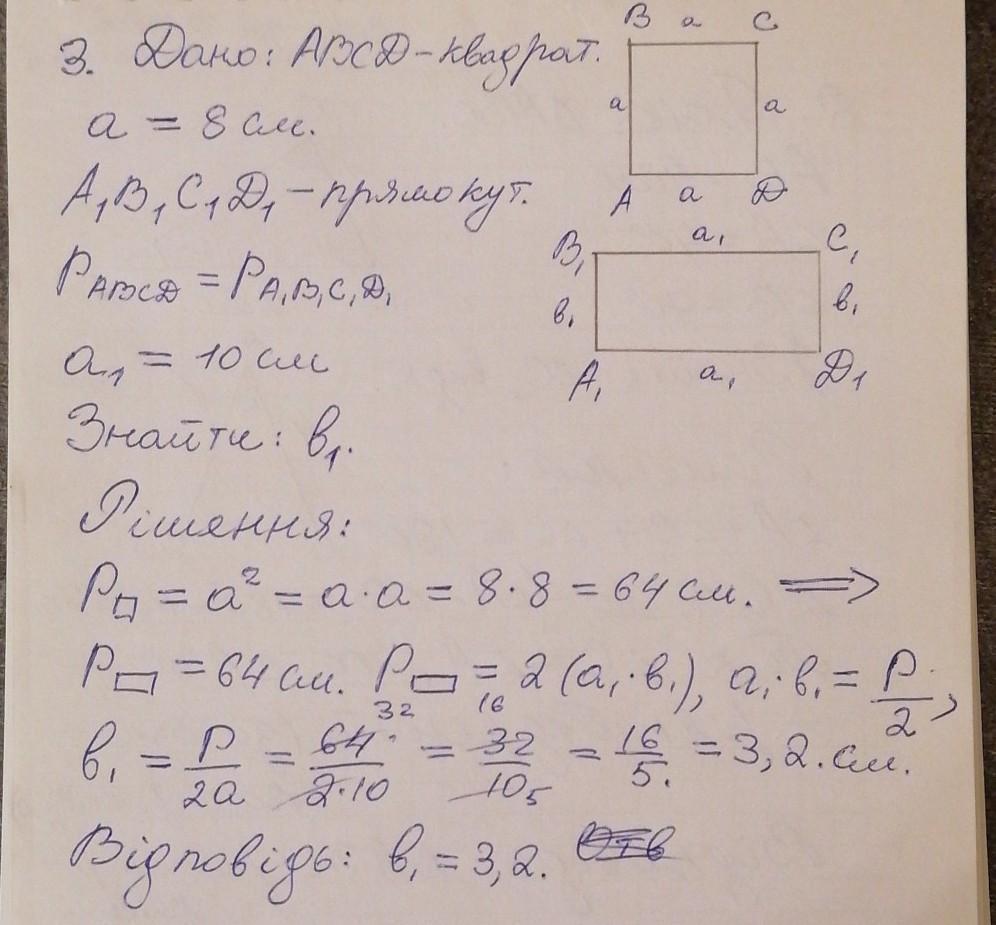 3. Дано: ABCD – квадрат.
a = 8 см.
A₁B₁C₁D₁ – прямокут.
P ABCD = P A₁B₁C₁D₁
a₁ = 10 см
Знайти: в₁.
B a C
a a
A a D
B₁ a₁ C₁
в₁ в₁
A₁ a₁ D₁
Рішення:
P□ = a² = a · a = 8 · 8 = 64 см. ⟹
P▭ = 64 см. P▭ = 2 (a₁ · в₁), a₁ · в₁ = P/2,
в₁ = P/2a = 64/2·10 = 32/10 = 16/5 = 3,2 см.
32 16 5
Відповідь: в₁ = 3,2.